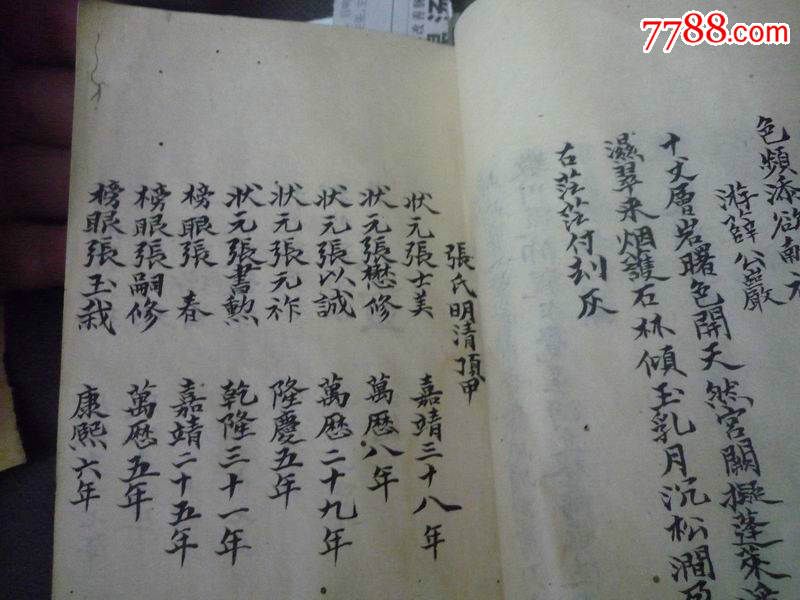 7788.com
色頻添欲南
游薛公巖
十丈層岩曙色開天然宮闕擬蓬萊
濕翠來烟護石林傾玉乳月沉松澗
古茫茫付刦灰
張氏明清頂甲
狀元張士美 嘉靖三十八年
狀元張懋修 萬歷八年
狀元張以誠 萬歷二十九年
狀元張元祚 隆慶五年
狀元張書勲 乾隆三十一年
榜眼張春 嘉靖二十五年
榜眼張嗣修 萬歷五年
榜眼張玉裁 康熙六年